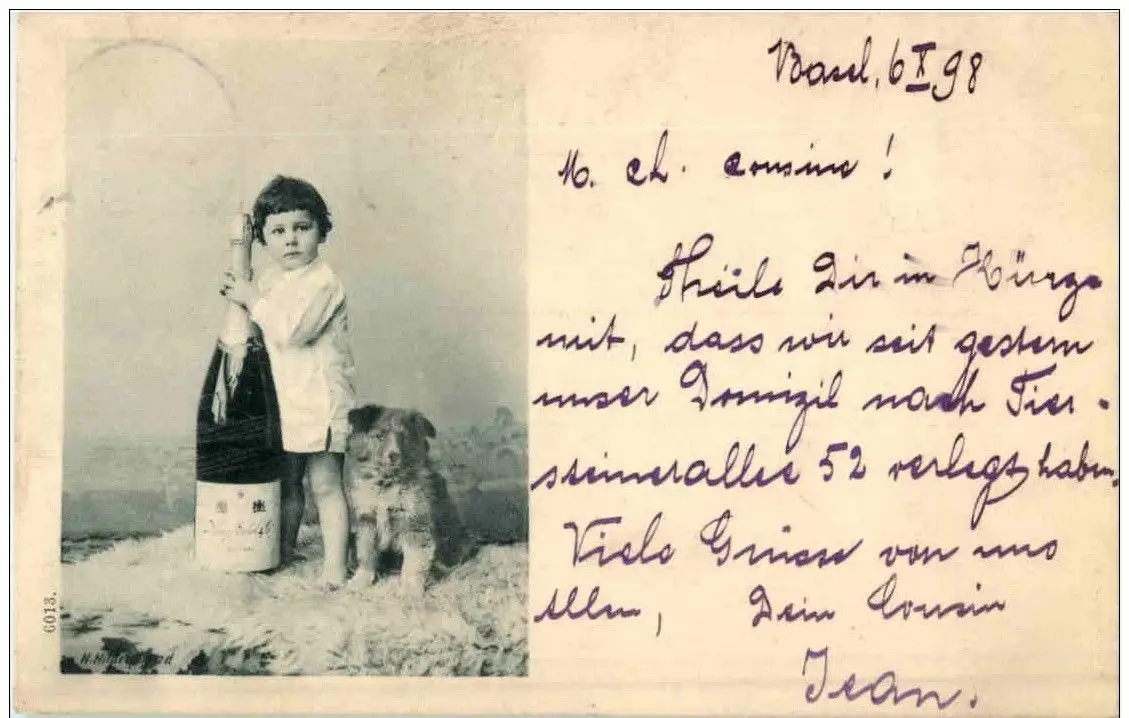 Basel, 6 X 98
M. ch. Cousine!
Theile Dir in Kürze
mit, dass wir seit gestern
unser Domizil nach Tier-
steinerallee 52 verlegt haben.
Viele Grüsse von uns
Allen, Dein Cousin
Jean.
6013.